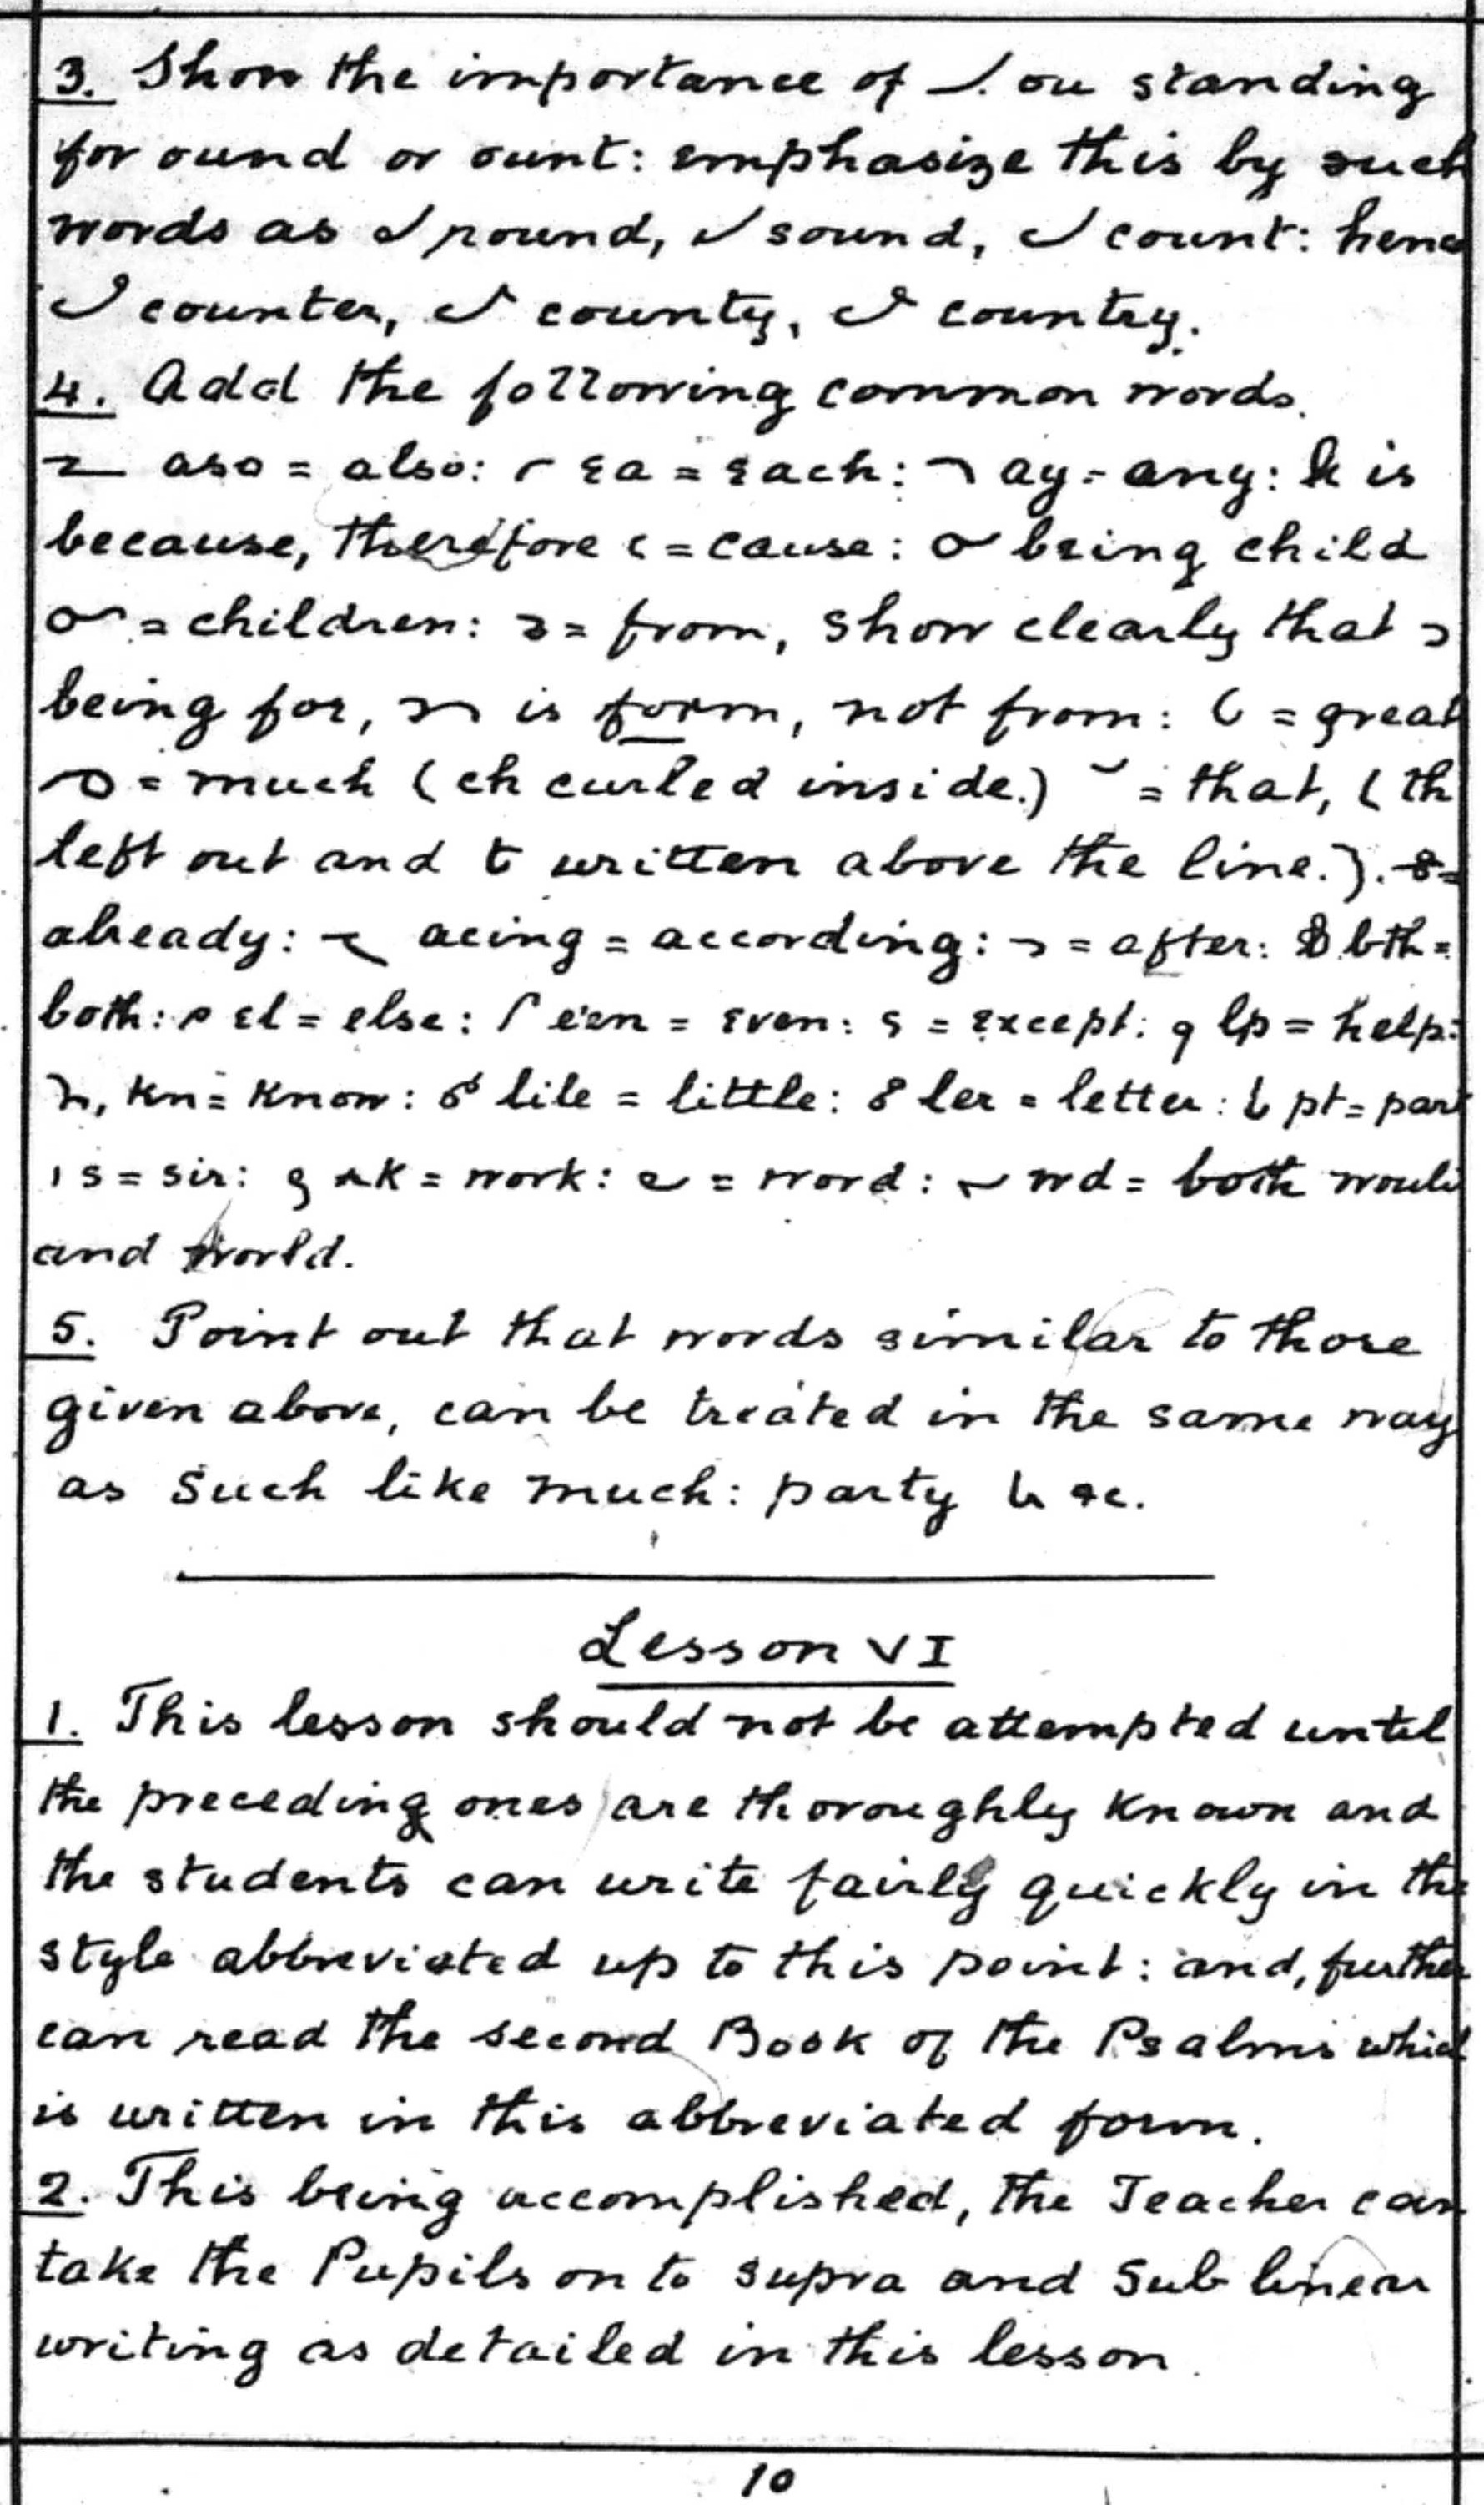 3. Show the importance of ou standing
for ound or ount: emphasize this by such
words as round, sound, count: hence
counter, county, country.
4. Add the following common words.
aso = also: ea = each: ay = any: is
because, therefore c = cause: being child
= children: = from, show clearly that
being for, is form, not from: = great
= much (ch curled inside.) = that, (th
left out and t written above the line.). =
already: acing = according: = after: bth =
both: el = else: e'en = even: = except: lp = help:
kn = know: litle = little: ler = letter: pt = part
s = sir: wk = work: = word: wd = both would
and world.
5. Point out that words similar to those
given above, can be treated in the same way
as Such like much: party &c.
Lesson VI
1. This lesson should not be attempted until
the preceding ones are thoroughly known and
the students can write fairly quickly in the
style abbreviated up to this point: and, further
can read the second Book of the Psalms which
is written in this abbreviated form.
2. This being accomplished, the Teacher can
take the Pupils on to supra and sub linear
writing as detailed in this lesson.
10